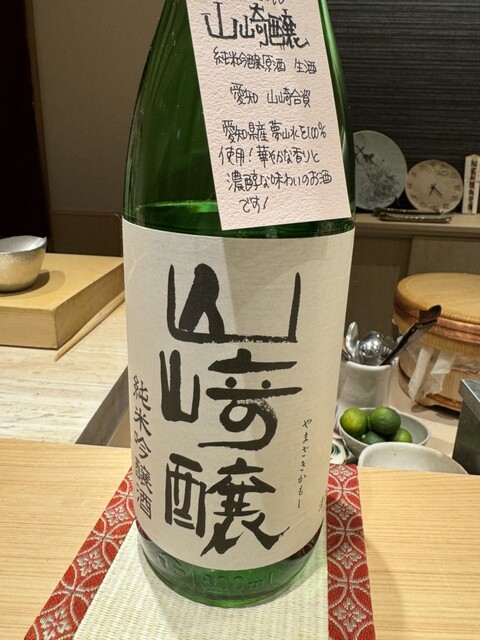 山﨑醸
純米吟醸原酒 生酒
愛知 山崎合資
愛知県産夢山水を100%
使用!華やかな香りと
濃醇な味わいのお酒
です!
山﨑醸
やまざきかもし
純米吟醸酒
1800ml